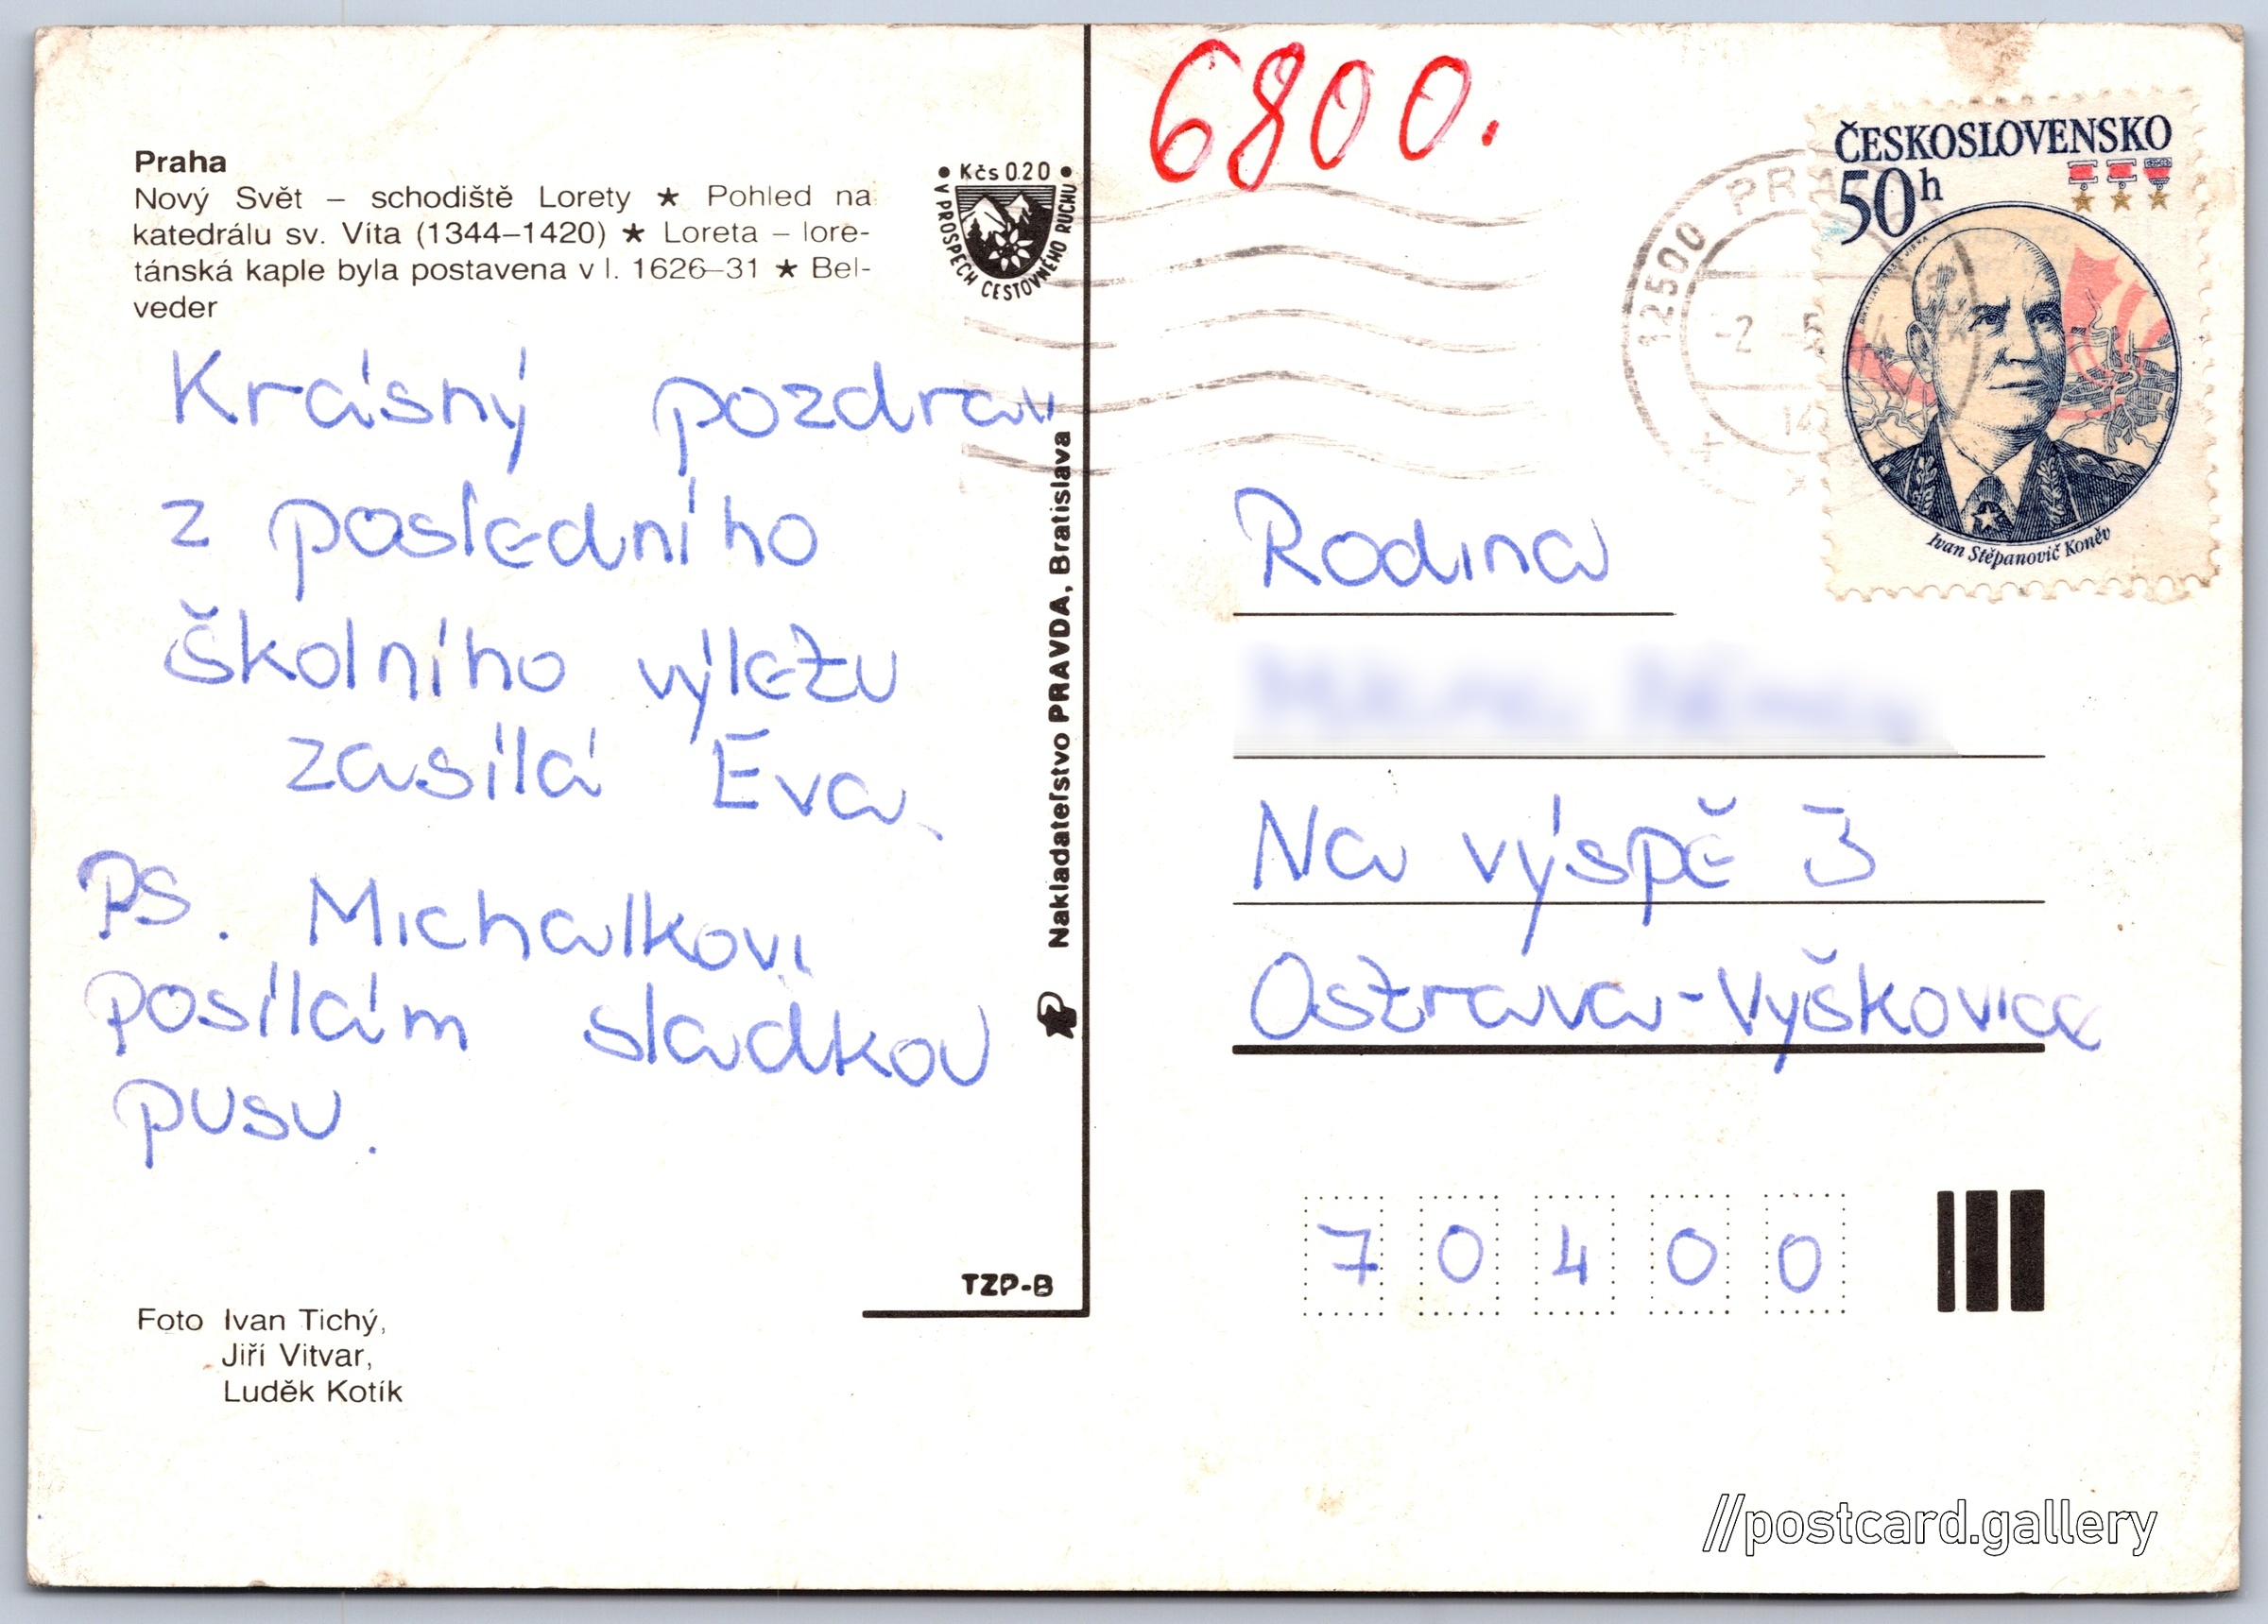 Praha
Nový Svět – schodiště Lorety ★ Pohled na
katedrálu sv. Víta (1344–1420) ★ Loreta – lore-
tánská kaple byla postavena v l. 1626–31 ★ Bel-
veder
• Kčs 0.20 •
V PROSPĚCH CESTOVNÉHO RUCHU
Krásný pozdrav
z posledního
školního výletu
zasílá Eva.
PS. Michalkovi
posílám sladkou
pusu.
Foto Ivan Tichý,
Jiří Vitvar,
Luděk Kotík
TZP-B
Nakladateľstvo PRAVDA, Bratislava
6800.
12500 PRA
-2 -5
14
ČESKOSLOVENSKO
50h
Ivan Stěpanovič Koněv
Rodina
Na výspě 3
Ostrava-Vyškovice
70400
//postcard.gallery